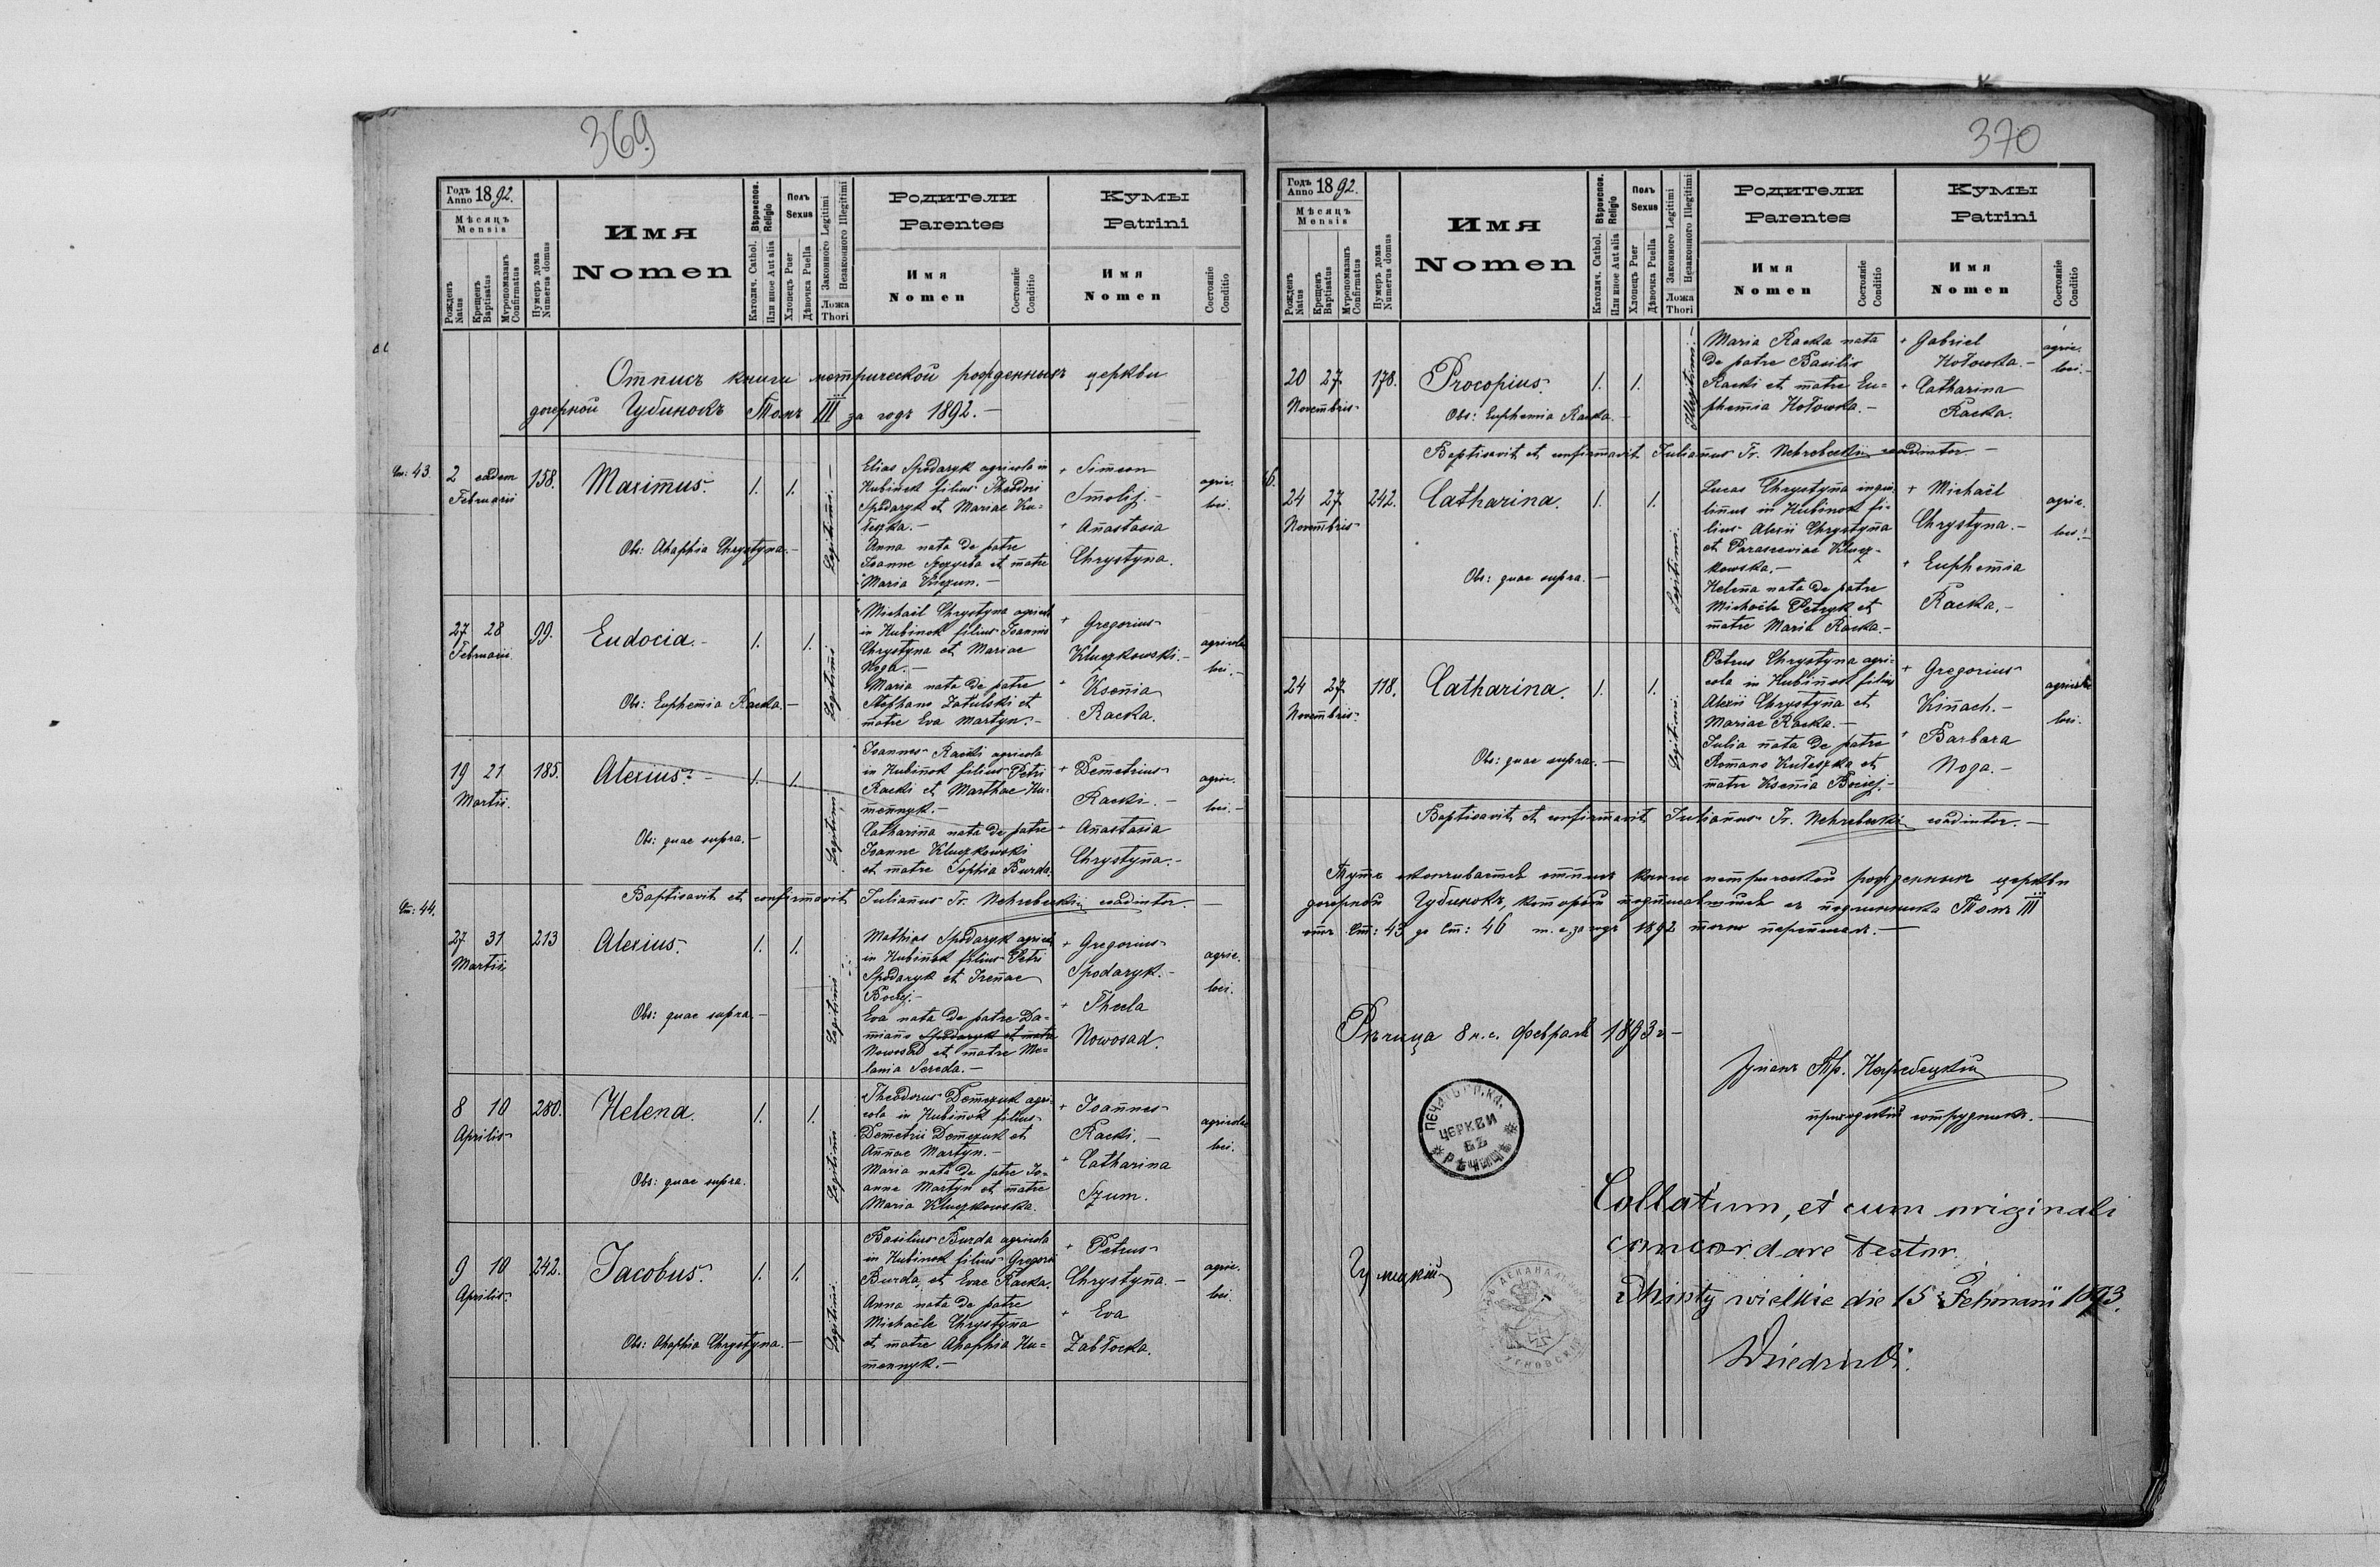 369
Годъ Anno 1892.
Мѣсяцъ Mensis
Рожденъ Natus
Крещенъ Baptisatus
Мѵропомазанъ Confirmatus
Нумеръ дома Numerus domus
Имя
Nomen
Вѣроиспов. Religio
Католич. Cathol.
Или иное Aut alia
Полъ Sexus
Хлопецъ Puer
Дѣвочка Puella
Законного Legitimi
Незаконного Illegitimi
Ложа Thori
Родители
Parentes
Имя Nomen
Состояніе Conditio
Кумы
Patrini
Имя Nomen
Состояніе Conditio
Отписъ книги метрической рожденныхъ церкви
дочерной Губинокъ Томъ III за годъ 1892. —
Ст: 43
2 eadem Februarii
158.
Maximus.
1. 1.
Obs: Ahaphia Chrystyna. —
Legitimi. —
Elias Spodaryk agricola in
Hubinok filius Theodori
Spodaryk et Mariae Ku-
leszka. —
Anna nata de patre
Joanne et matre
Maria
+ Simeon
Smolij. —
+ Anastasia
Chrystyna.
agric.
loci.
27 28 Februarii
99.
Eudocia. —
1. 1.
Obs: Euphemia Racka. —
Legitimi
Michaël Chrystyna agricola
in Hubinok filius Joannis
Chrystyna et Mariae
Noga. —
Maria nata de patre
Stephano Zatulski et
matre Eva Martyn. —
+ Gregorius
Kluczkowski. —
+ Ksenia
Racka.
agricolae
loci. —
19 21 Martii.
185.
Alexius. —
1. 1.
Obs: quae supra. —
Legitimi
Joannes Racki agricola
in Hubinok filius Petri
Racki et Marthae Hu-
mennyk. —
Catharina nata de patre
Joanne Kluczkowski
et matre Sophia Burda.
+ Demetrius
Racki. —
+ Anastasia
Chrystyna. —
agric.
loci. —
Baptisavit et confirmavit Julianus Tr. Nehrebecki coadiutor. —
Ст: 44.
27 31 Martii
213
Alexius.
1. 1.
Obs: quae supra. —
Legitimi
Mathias Spodaryk agricola
in Hubinok filius Petri
Spodaryk et Irenae
Bociej. —
Eva nata de patre Da-
miano Spodaryk et matre
Nowosad et matre Me-
lania Sereda. —
+ Gregorius
Spodaryk. —
+ Thecla
Nowosad.
agric.
loci.
8 10 Aprilis
280.
Helena.
1. 1.
Obs: quae supra.
Legitimi
Theodorus Demczuk agri-
cola in Hubinok filius
Demetrii Demczuk et
Annae Martyn. —
Maria nata de patre Jo-
anne Martyn et matre
Maria Kluczkowska.
+ Joannes
Racki. —
+ Catharina
Szum.
agricolae
loci.
9 10 Aprilis.
242.
Jacobus.
1. 1.
Obs: Ahaphia Chrystyna. —
Legitimi.
Basilius Burda agricola
in Hubinok filius Gregorii
Burda, et Evae Racka.
Anna nata de patre
Michaële Chrystyna
et matre Ahaphia Hu-
mennyk. —
+ Petrus
Chrystyna. —
+ Eva
Zabłocka.
agric.
loci.
370
Годъ Anno 1892.
Мѣсяцъ Mensis
Рожденъ Natus
Крещенъ Baptisatus
Мѵропомазанъ Confirmatus
Нумеръ дома Numerus domus
Имя
Nomen
Вѣроиспов. Religio
Католич. Cathol.
Или иное Aut alia
Полъ Sexus
Хлопецъ Puer
Дѣвочка Puella
Законного Legitimi
Незаконного Illegitimi
Ложа Thori
Родители
Parentes
Имя Nomen
Состояніе Conditio
Кумы
Patrini
Имя Nomen
Состояніе Conditio
20 27 Novembris
178.
Procopius.
1. 1.
Obs: Euphemia Racka. —
Illegitimi. —
Maria Racka nata
de patre Basilio
Racki et matre Eu-
phemia Kotowska. —
+ Gabriel
Kotowska. —
+ Catharina
Racka.
agric.
loci. —
Baptisavit et confirmavit Julianus Tr. Nehrebecki coadiutor —
24 27 Novembris
242.
Catharina.
1. 1.
Obs: quae supra. —
Legitimi.
Lucas Chrystyna inqui-
linus in Hubinok fi-
lius Alexii Chrystyna
et Parasceviae Klucz-
kowska. —
Helena nata de patre
Michaële Petryk et
matre Maria Racka. —
+ Michaël
Chrystyna. —
+ Euphemia
Racka. —
agric.
loci. —
24 27 Novembris
118.
Catharina.
1. 1.
Obs: quae supra. —
Legitimi.
Petrus Chrystyna agri-
cola in Hubinok filius
Alexii Chrystyna et
Mariae Racka. —
Julia nata de patre
Romano Kuleszka et
matre Ksenia Bociej. —
+ Gregorius
Kinach. —
+ Barbara
Noga. —
agricolae
loci.
Baptisavit et confirmavit Julianus Tr. Nehrebecki coadiutor. —
Тутъ отписъ книги метрической рожденныхъ церкви
дочерной Губинокъ, которы съ подлинника Томъ III
отъ Ст: 43 до Ст: 46 т. е. за годъ 1892 точно переписалъ. —
Рѣчица 8 н. с. Февраля 1893 г —
Юліанъ Тр. Негребецкій
приходскій сотрудникъ. —
ПЕЧАТЬ ГР. КА. ЦЕРКВИ ВЪ РѢЧИЦѢ
Collatum, et cum originali
concordare testor.
wielkie die 15 Februarii 1893.